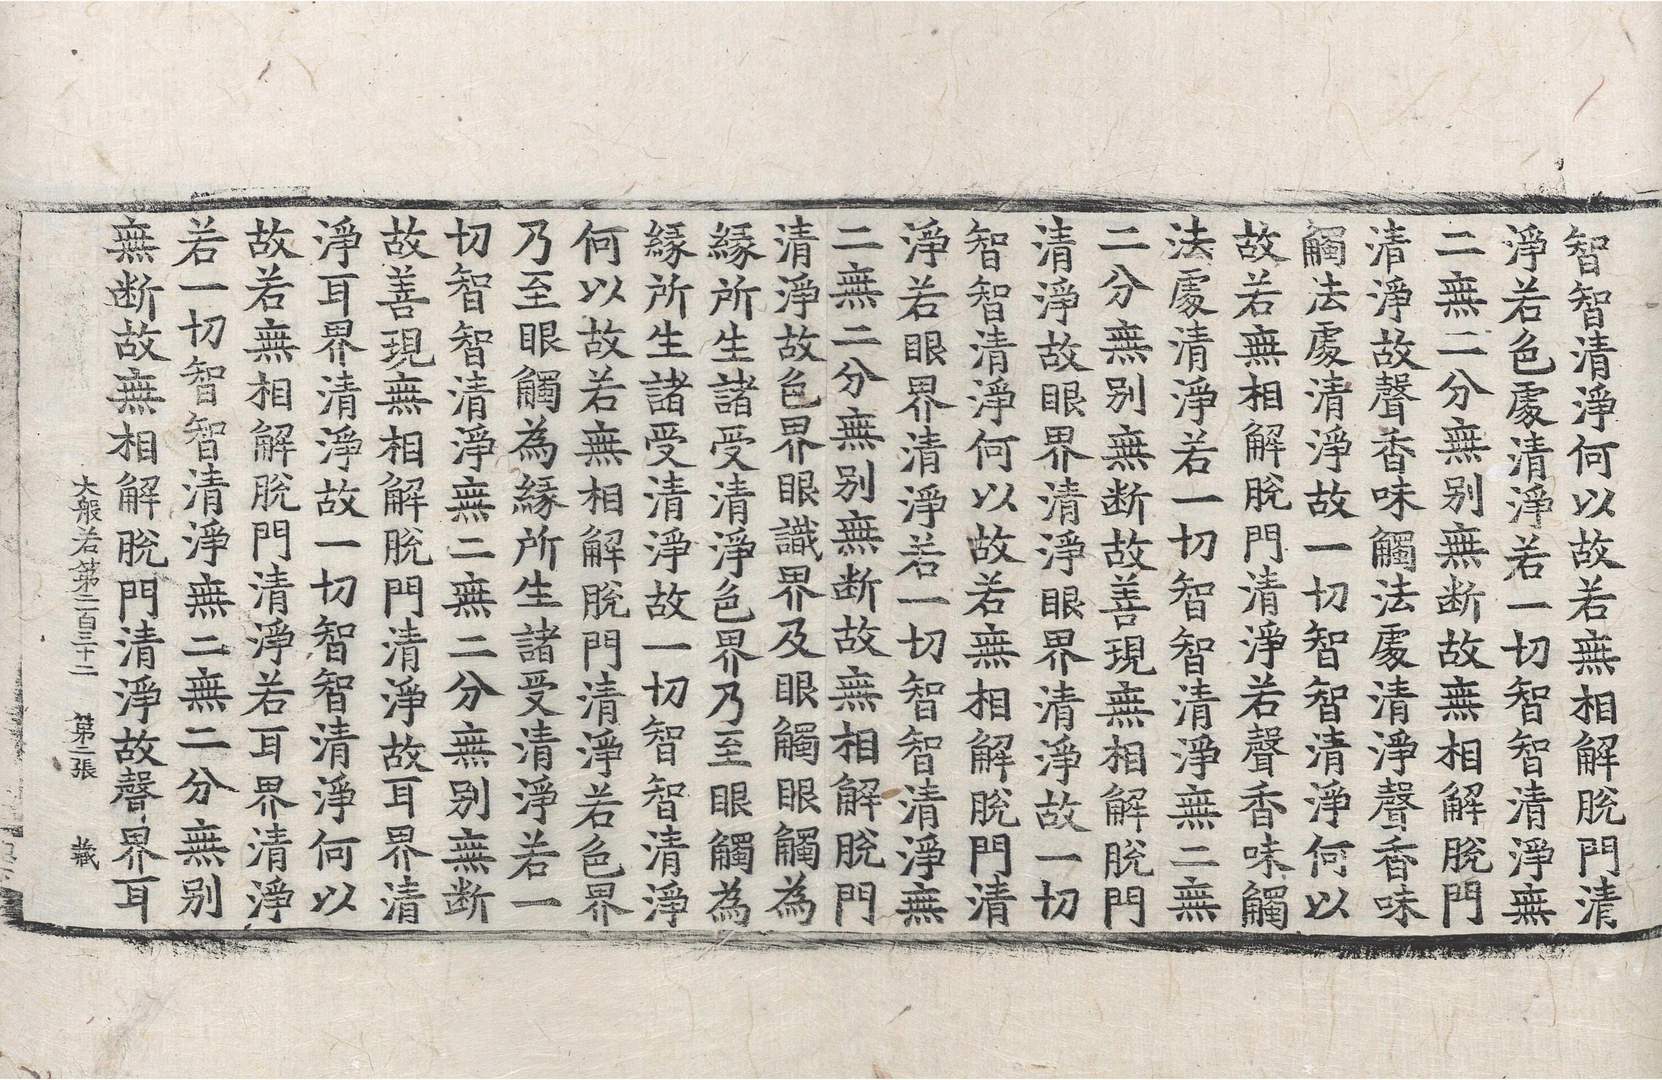 智智清淨何以故若無相解脫門清
淨若色處清淨若一切智智清淨無
二無二分無別無断故無相解脫門
清淨故聲香味觸法處清淨聲香味
觸法處清淨故一切智智清淨何以
故若無相解脫門清淨若聲香味觸
法處清淨若一切智智清淨無二無
二分無別無断故善現無相解脫門
清淨故眼界清淨眼界清淨故一切
智智清淨何以故若無相解脫門清
淨若眼界清淨若一切智智清淨無
二無二分無別無断故無相解脫門
清淨故色界眼識界及眼觸眼觸為
緣所生諸受清淨色界乃至眼觸為
緣所生諸受清淨故一切智智清淨
何以故若無相解脫門清淨若色界
乃至眼觸為緣所生諸受清淨若一
切智智清淨無二無二分無別無断
故善現無相解脫門清淨故耳界清
淨耳界清淨故一切智智清淨何以
故若無相解脫門清淨若耳界清淨
若一切智智清淨無二無二分無別
無断故無相解脫門清淨故聲界耳
大般若第二百三十二 第二張 藏